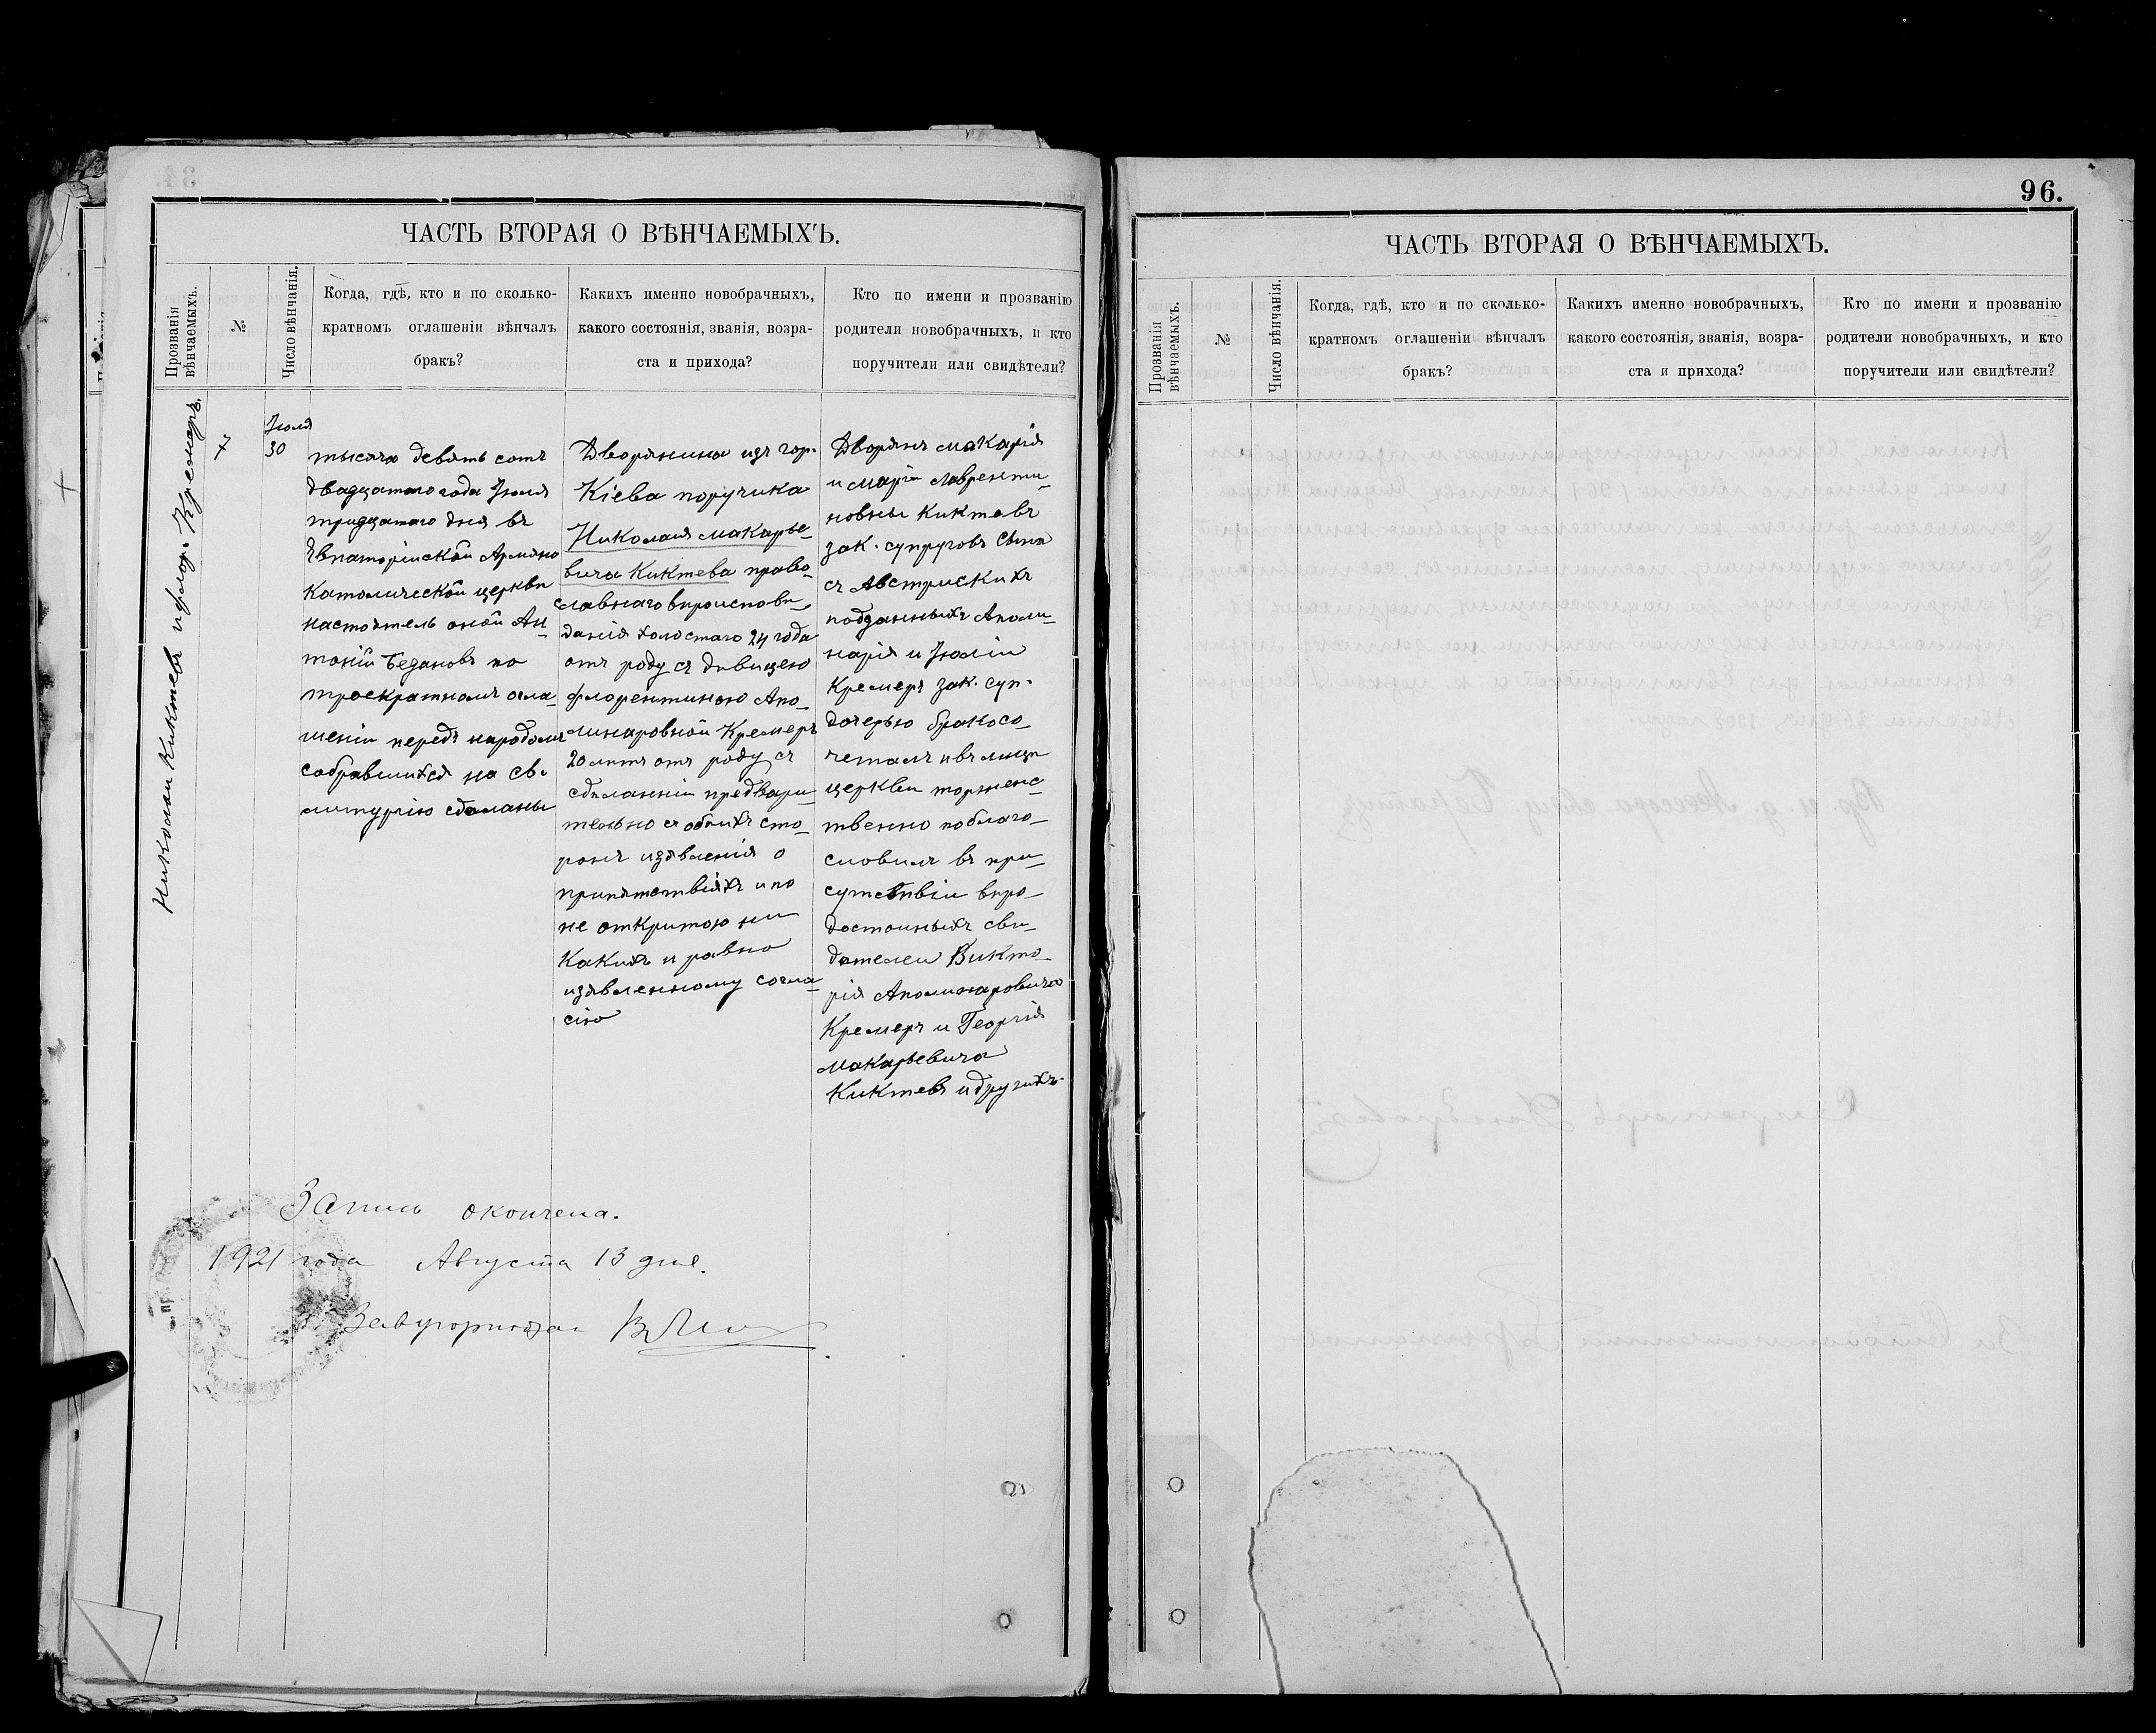 ЧАСТЬ ВТОРАЯ О ВѢНЧАЕМЫХЪ.
Прозванія
вѣнчаемыхъ.
№
Число вѣнчанія.
Когда, гдѣ, кто и по сколько-
кратномъ оглашеніи вѣнчалъ
бракъ?
Какихъ именно новобрачныхъ,
какого состоянія, званія, возра-
ста и прихода?
Кто по имени и прозванію
родители новобрачныхъ, и кто
поручители или свидѣтели?
Николай Киктевъ и флор. Кремеръ.
7
Іюля
30
тысяча девять сотъ
двадцатаго года Іюля
тридцатаго дня въ
Евпаторіиской Армяно
Католической церкви
настоятель оной Ан-
тоній Бедановъ по
троекратномъ огла-
шеніи передъ народомъ
собравшихся на св.
литургію сдѣланы
Дворянина изъ гор.
Кіева поручика
Николая Макарье-
вича Киктева право-
славнаго вѣроисповѣ-
данія холостаго 24 года
отъ роду съ дѣвицею
флорентиною Апо-
линаровной Кремеръ
20 лѣтъ отъ роду съ
сдѣланніи предвари-
тельно съ обѣихъ сто-
ронъ изявленія о
припятствіяхъ и по
не откритою ни
какихъ и равно
изявленному согла-
сію
Дворянъ Макарія
и Маріи Лавренти-
новны Киктевъ
зак. супруговъ сына
съ Австрискихъ
подданныхъ Аполи-
нарія и Юліи
Кремеръ зак. суп.
дочерью бракосо-
четалъ и въ лицѣ
церкви торженс-
твенно поблаго-
словилъ въ при-
сутствіи вѣро-
достоиныхъ сви-
дѣтелеи Викто-
рія Аполинаровича
Кремеръ и Георгія
Макарьевича
Киктевъ и другихъ.
Запись окончена.
1921 года Августа 13 дня.
96.
ЧАСТЬ ВТОРАЯ О ВѢНЧАЕМЫХЪ.
Прозванія
вѣнчаемыхъ.
№
Число вѣнчанія.
Когда, гдѣ, кто и по сколько-
кратномъ оглашеніи вѣнчалъ
бракъ?
Какихъ именно новобрачныхъ,
какого состоянія, званія, возра-
ста и прихода?
Кто по имени и прозванію
родители новобрачныхъ, и кто
поручители или свидѣтели?